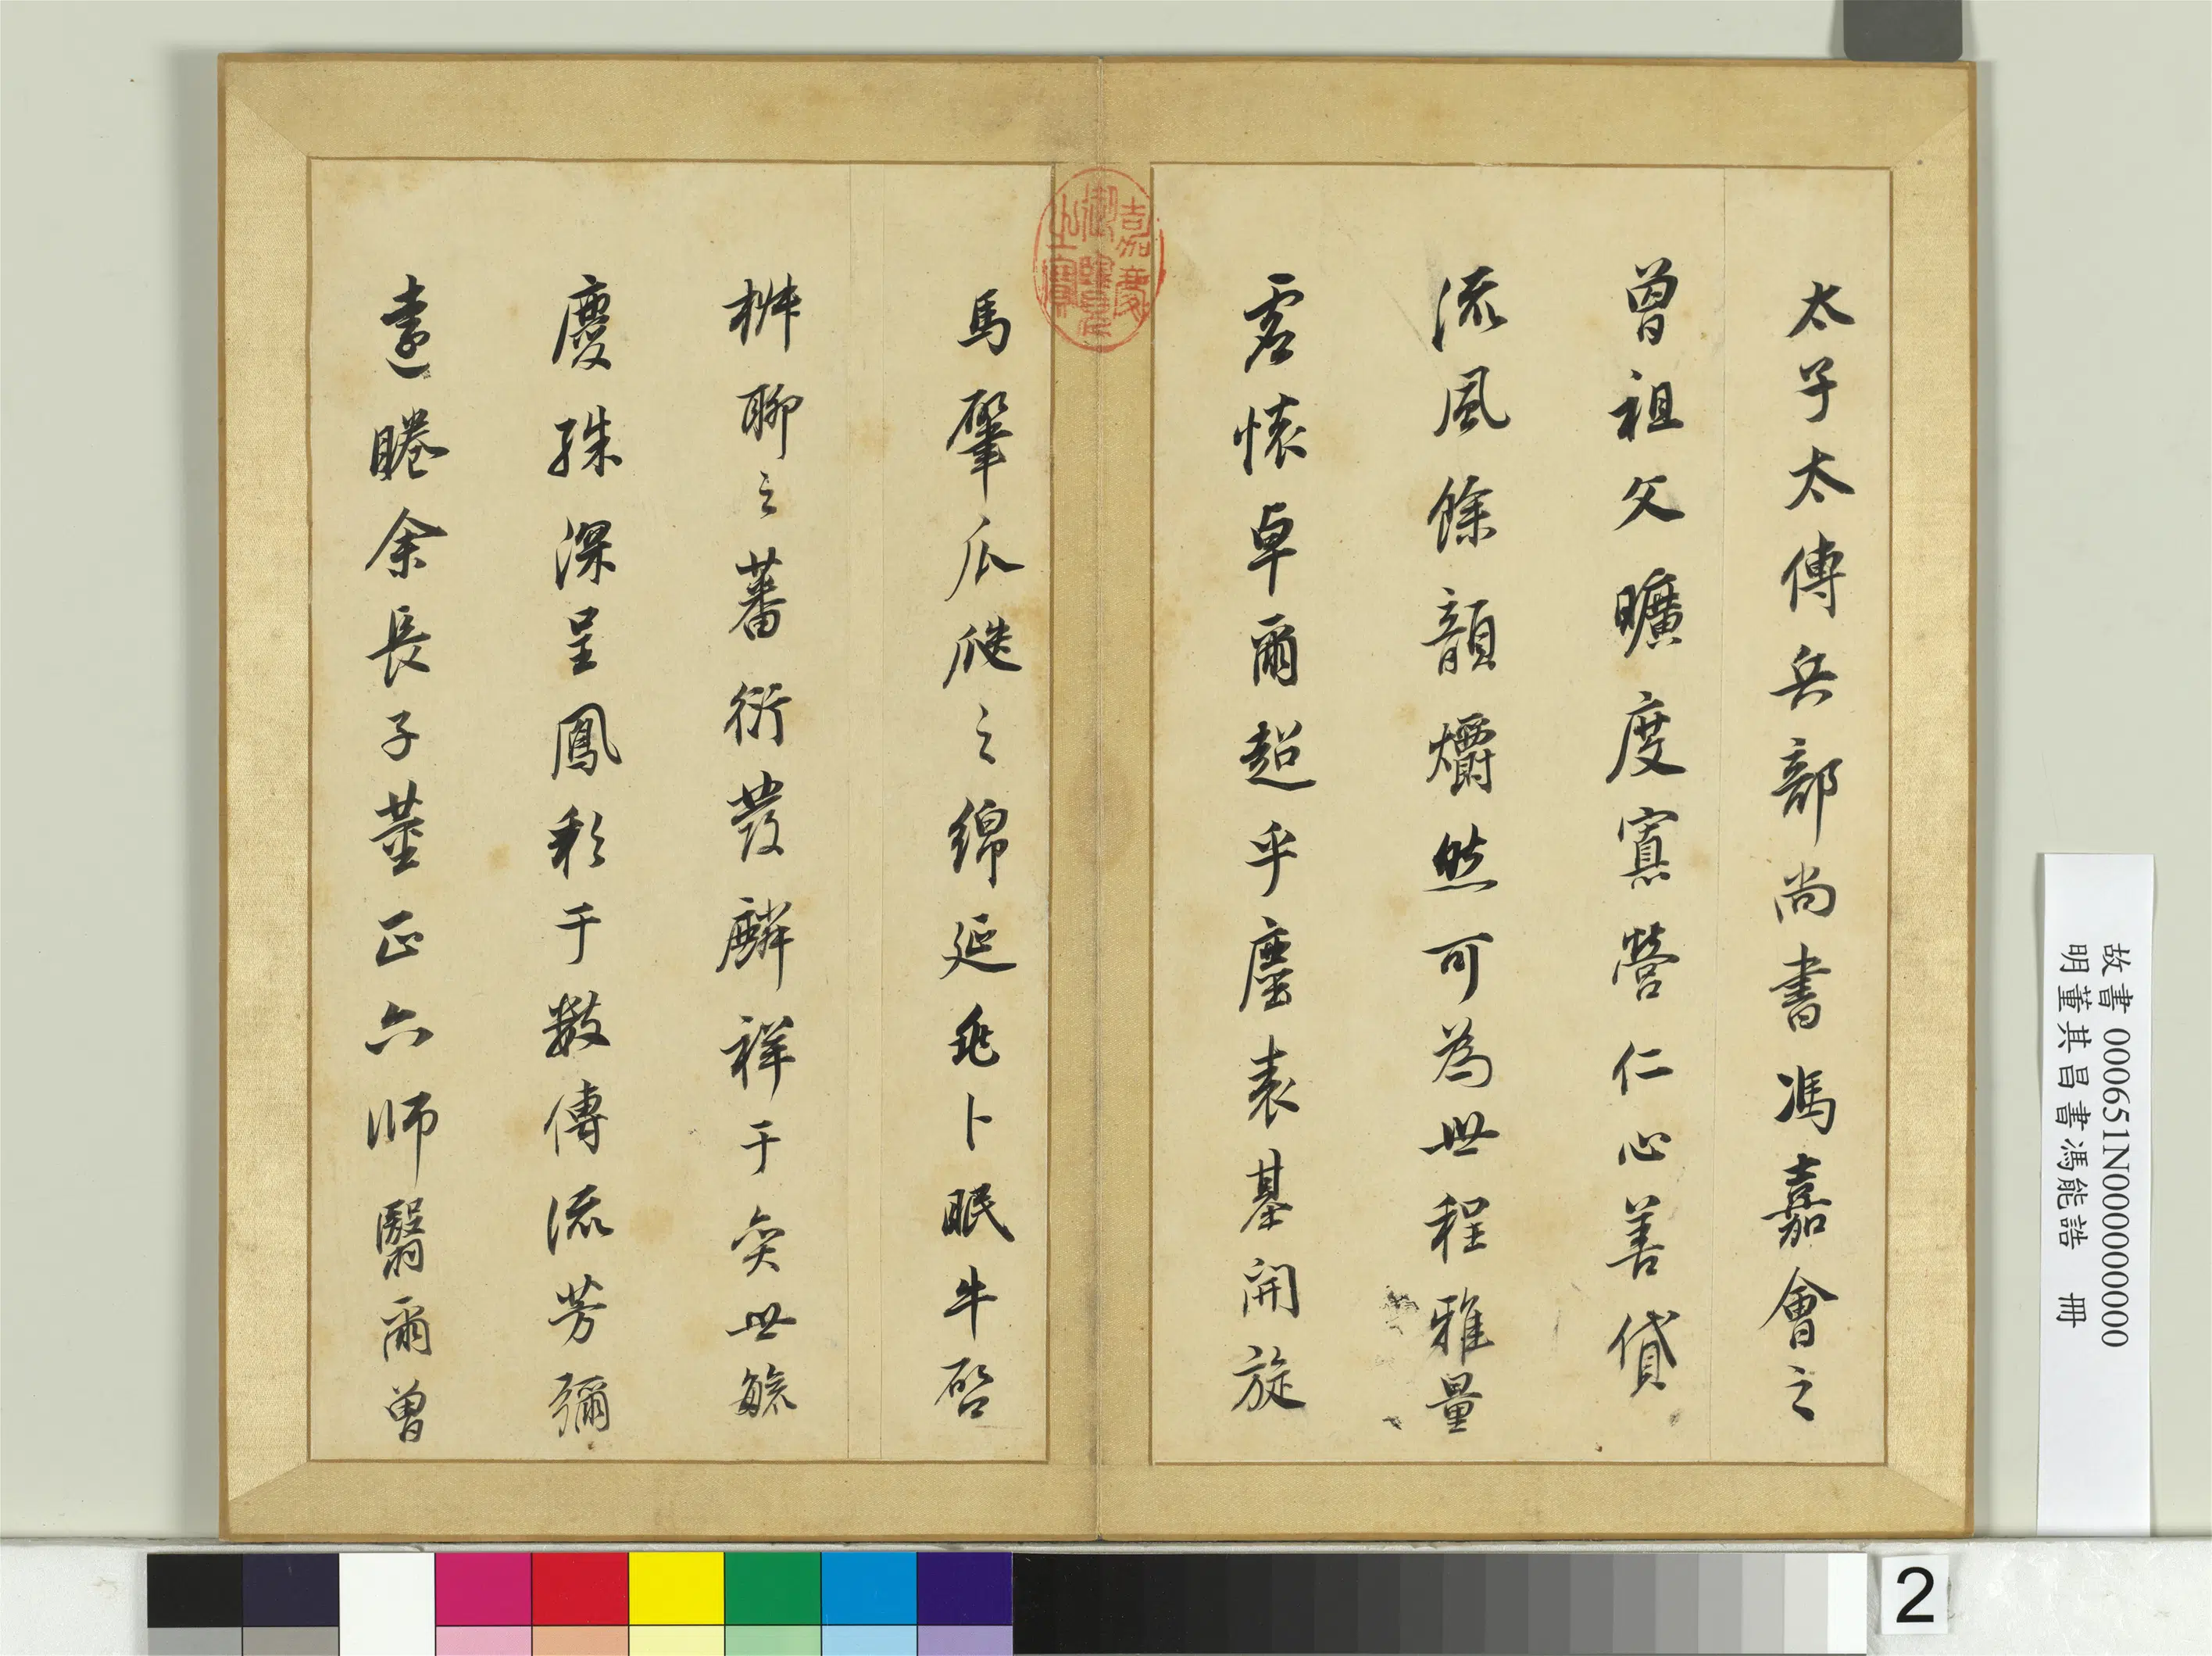 太子太傅兵部尚書馮嘉會之
曾祖父曠度寘營仁心善貸
流風餘韻爝然可為世程雅量
虛懷卓爾超乎塵表基開旋
馬肇瓜瓞之綿延兆卜眠牛啓
椒聊之蕃衍發麟祥于奕世毓
慶殊深呈鳳彩于數傳流芳彌
遠睠余長子董正六師翳爾曾
嘉慶
御覽
之寶
故書 000651N000000000
明董其昌書馮能誥 冊
2